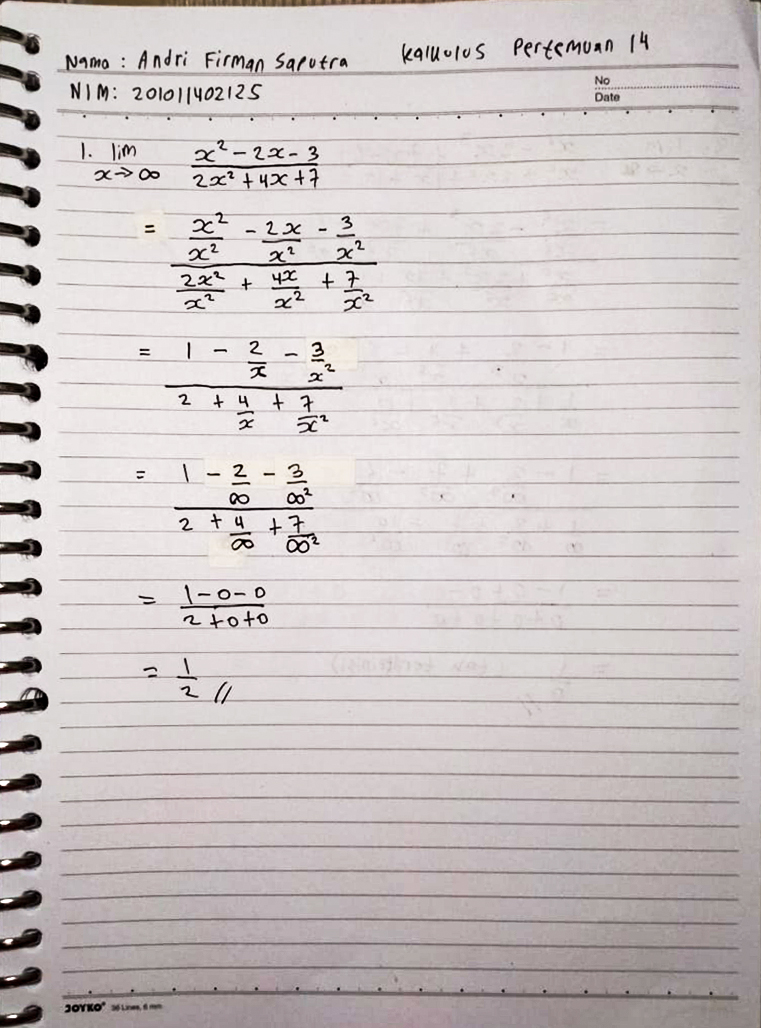 Nama : Andri Firman Saputra Kalkulus Pertemuan 14
NIM: 201011402125
No
Date
1. lim x→∞ (x² - 2x - 3)/(2x² + 4x + 7)
= (x²/x² - 2x/x² - 3/x²)/(2x²/x² + 4x/x² + 7/x²)
= (1 - 2/x - 3/x²)/(2 + 4/x + 7/x²)
= (1 - 2/∞ - 3/∞²)/(2 + 4/∞ + 7/∞²)
= (1-0-0)/(2+0+0)
= 1/2 //
JOYKO® 36 Lines, 6 mm